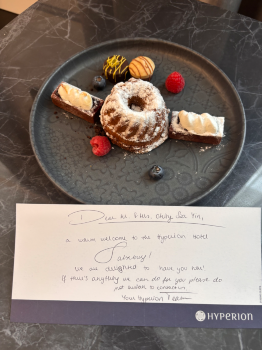 Dear Mr & Mrs.
a warm welcome to the Hyperion Hotel
We are delighted to have you here!
If there's anything we can do for you please do
not hesitate to
Your Hyperion Team
HYPERION